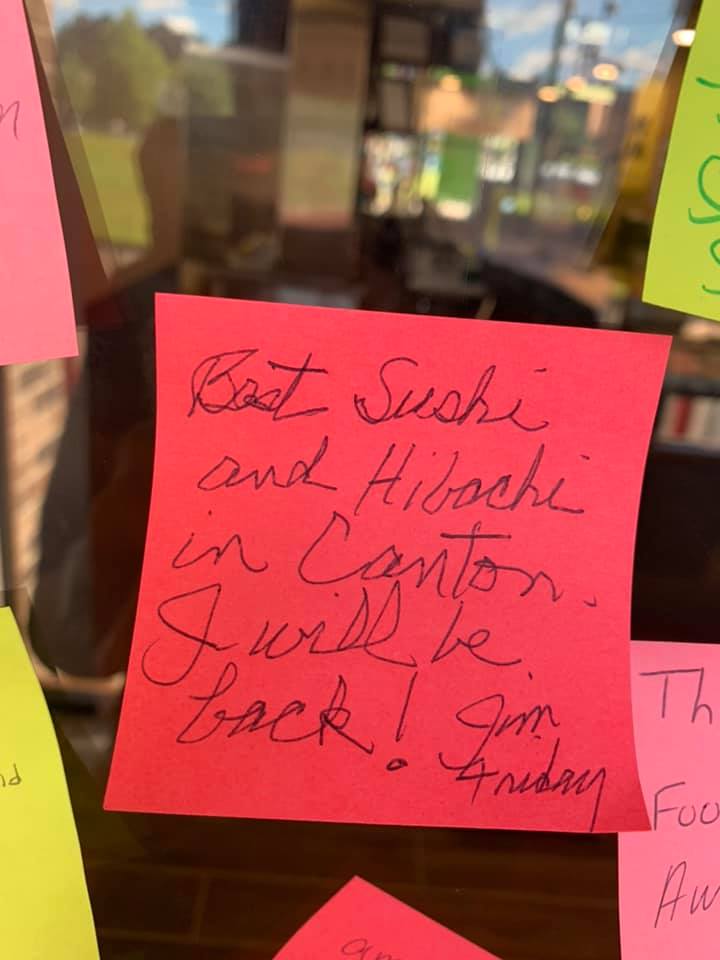 Best Sushi
and Hibachi
in Canton.
I will be
back! Jim
Friday
Th
Foo
Aw